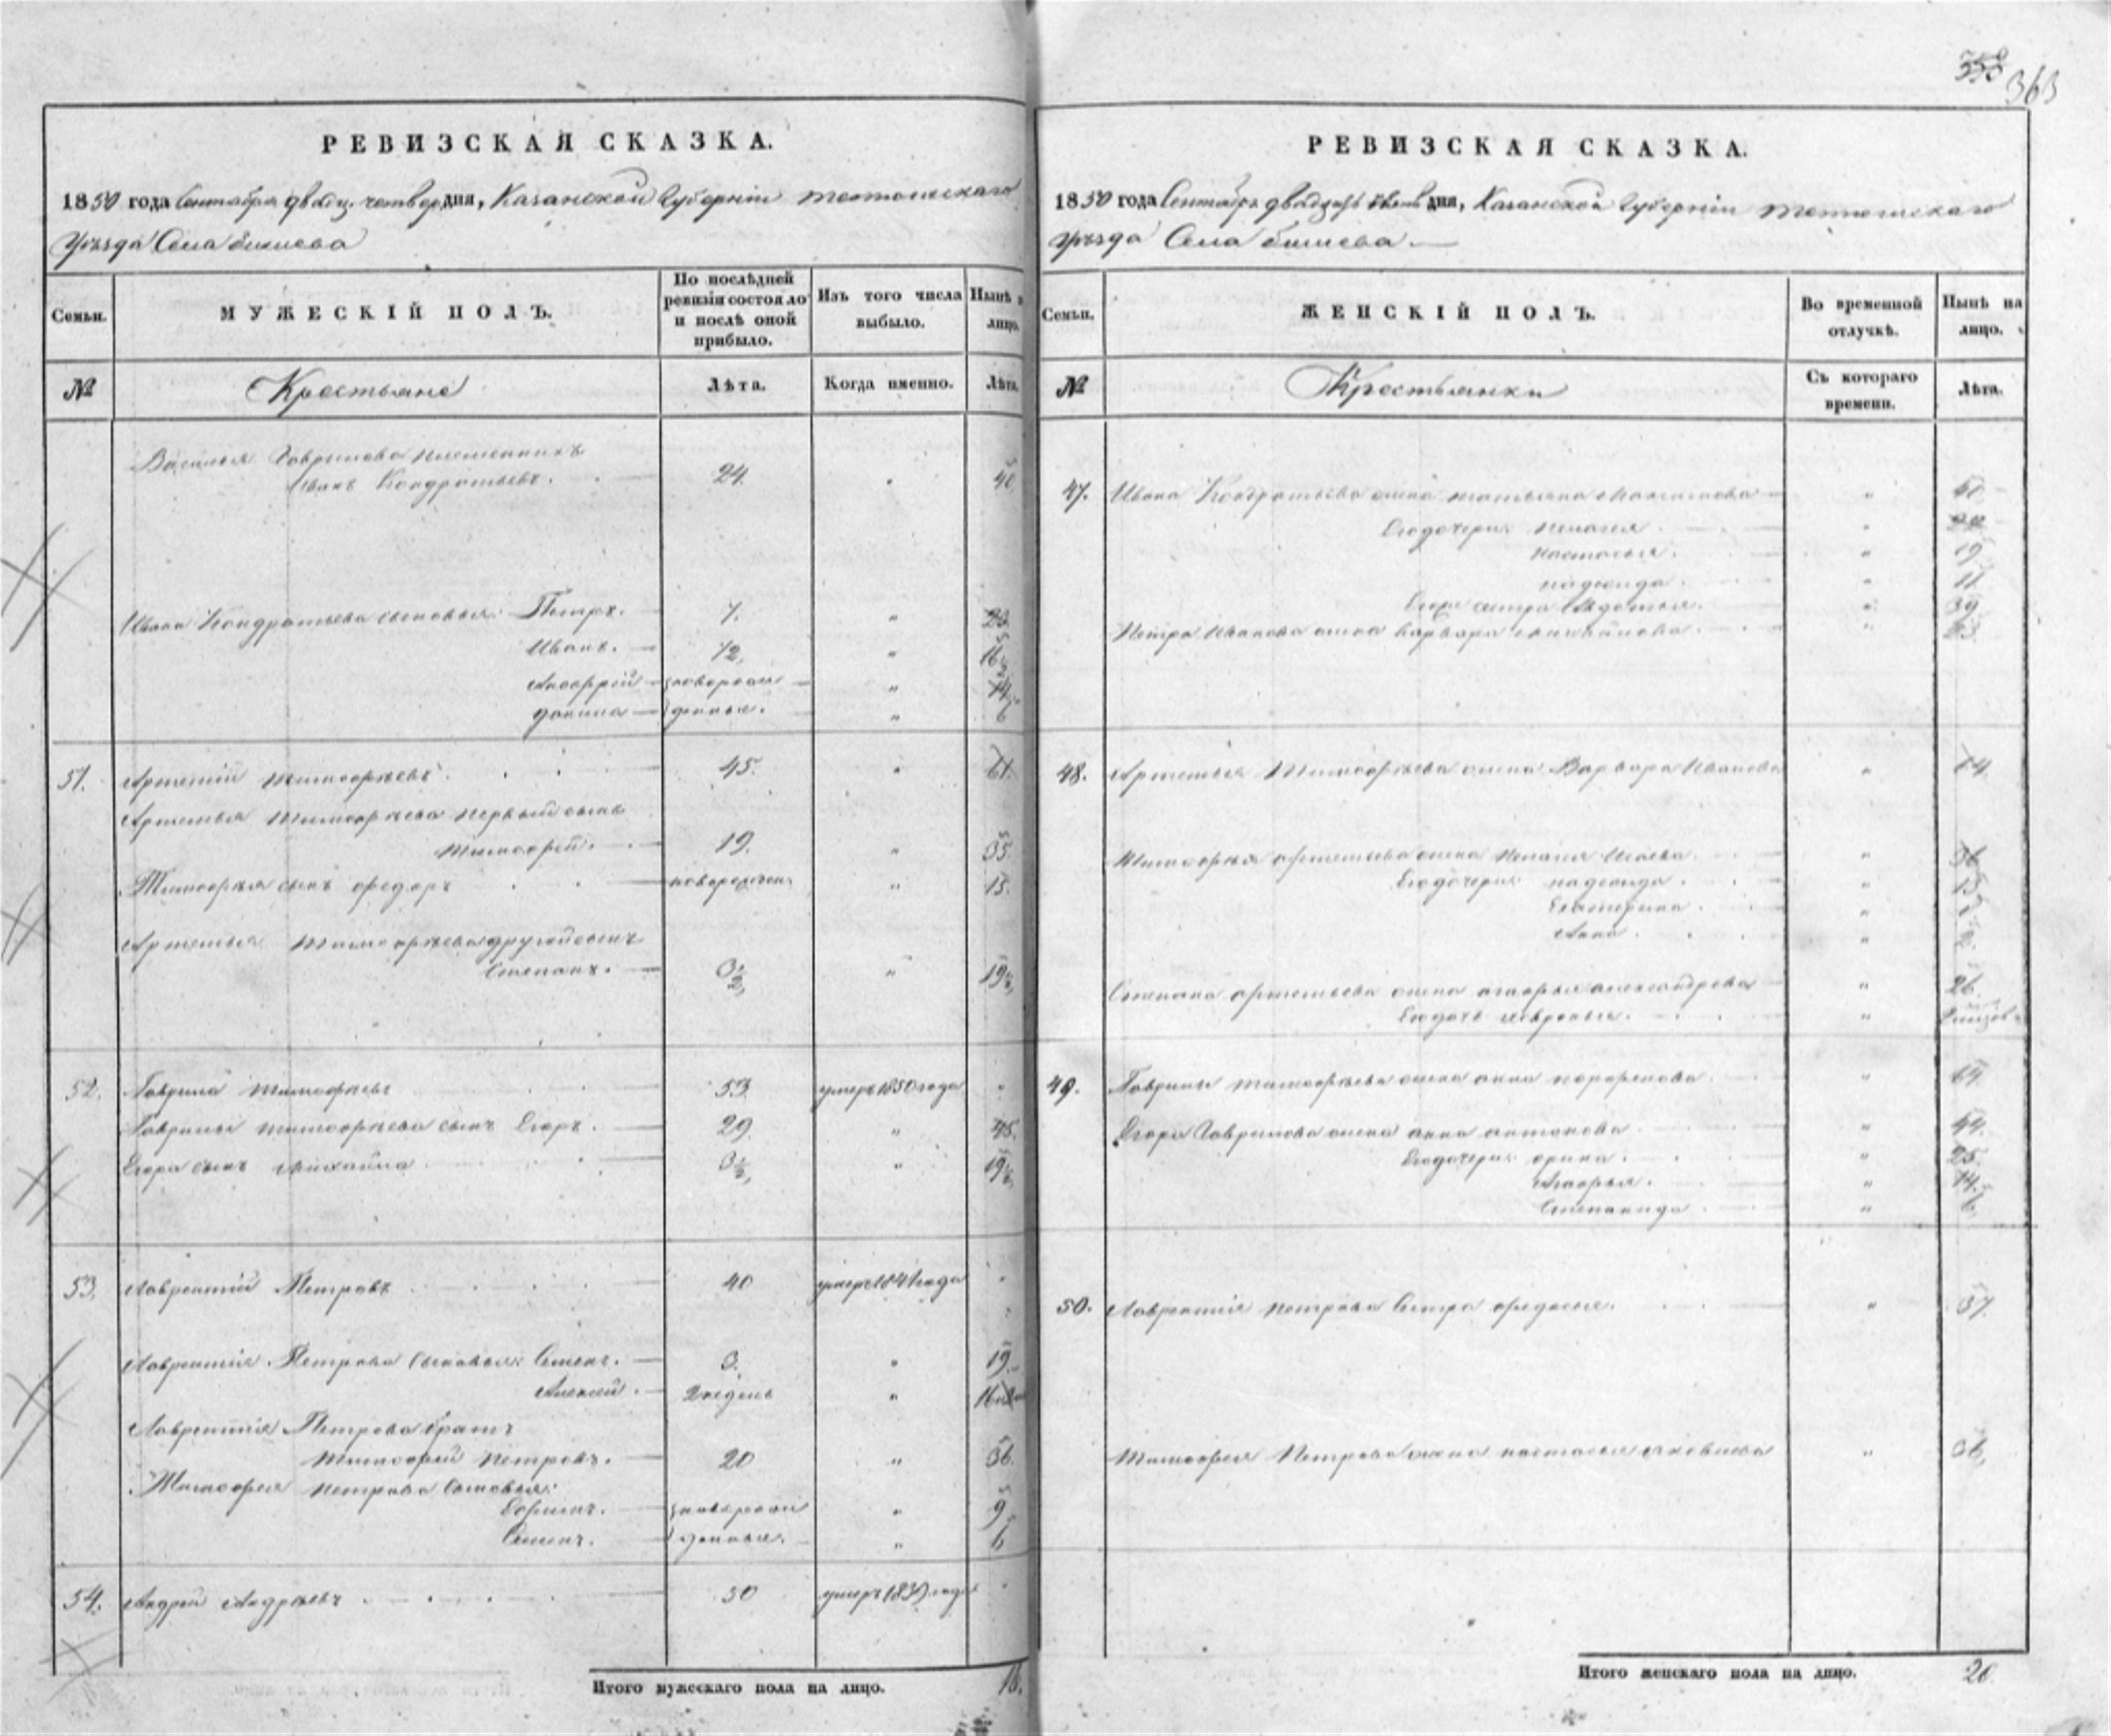 358
363
РЕВИЗСКАЯ СКАЗКА.
1850 года Сентября двадц. четвер дня, Казанской Губерніи Тетюшскаго
Уѣзда Села
Семьи.
МУЖЕСКІЙ ПОЛЪ.
По послѣдней ревизіи состояло и послѣ оной прибыло.
Изъ того числа выбыло.
Нынѣ на лицо.
№
Крестьяне
Лѣта.
Когда именно.
Лѣта.
Василья Гаврилова племянникъ
Иванъ Кондратьевъ. 24. " 40
Ивана Кондратьева сыновья: Петръ. 7. " 23.
Иванъ. 1/2, " 16
Андрей новорож "
Данила денные. " 6
51. Артемій Тимофѣевъ. 45. " 61.
Артемья Тимофѣева первый сынъ
Тимофей. 19. " 35.
Тимофея сынъ Федоръ новорожден. " 15.
Артемья Тимофѣева другой сынъ
Степанъ. 3 1/2, " 19 1/2,
52. Гаврила Тимофѣевъ 53. умеръ 1850 года "
Гаврилы Тимофѣева сынъ Егоръ. 29. " 45.
Егора сынъ Михайла 3 1/2, " 19 1/2,
53. Лаврентій Петровъ 40 умеръ 1841 года "
Лаврентія Петрова сыновья: Семенъ. 3. " 19.
Алексей. 2 недель "
Лаврентія Петрова братъ
Тимофей Петровъ. 20 " 36.
Тимофея Петрова сыновья:
Ефимъ. новорож " 9
Семенъ. денные. " 6
54. Андрей Андреевъ 50 умеръ 1839 года "
Итого мужескаго пола на лицо. 16.
РЕВИЗСКАЯ СКАЗКА.
1850 года Сентября двадцать дня, Казанской Губерніи Тетюшскаго
Уѣзда Села
Семьи.
ЖЕНСКІЙ ПОЛЪ.
Во временной отлучкѣ.
Нынѣ на лицо.
№
Крестьянки
Съ котораго времени.
Лѣта.
47. Ивана Кондратьева жена Татьяна Максимова "
Его дочери: Пелагея "
Настасья. " 19
Надежда. " 11
Его сестра Авдотья. " 39
Петра Иванова жена Варвара Михайлова. " 23
48. Артемья Тимофѣева жена Варвара Иванова "
Тимофея Артемьева жена Пелагея " 36
Его дочери: Надежда " 13
Екатерина "
Анна. "
Степана Артемьева жена Марья Александрова " 26
Его дочь Февронья. "
49. Гаврилы Тимофѣева жена Анна " 64
Егора Гаврилова жена Анна Антонова " 44.
Его дочери: Орина. " 25.
Марья. " 14.
Степанида " 6
50. Лаврентія Петрова сестра Федосья. " 37.
Тимофея Петрова жена Настасья " 36,
Итого женскаго пола на лицо. 20.